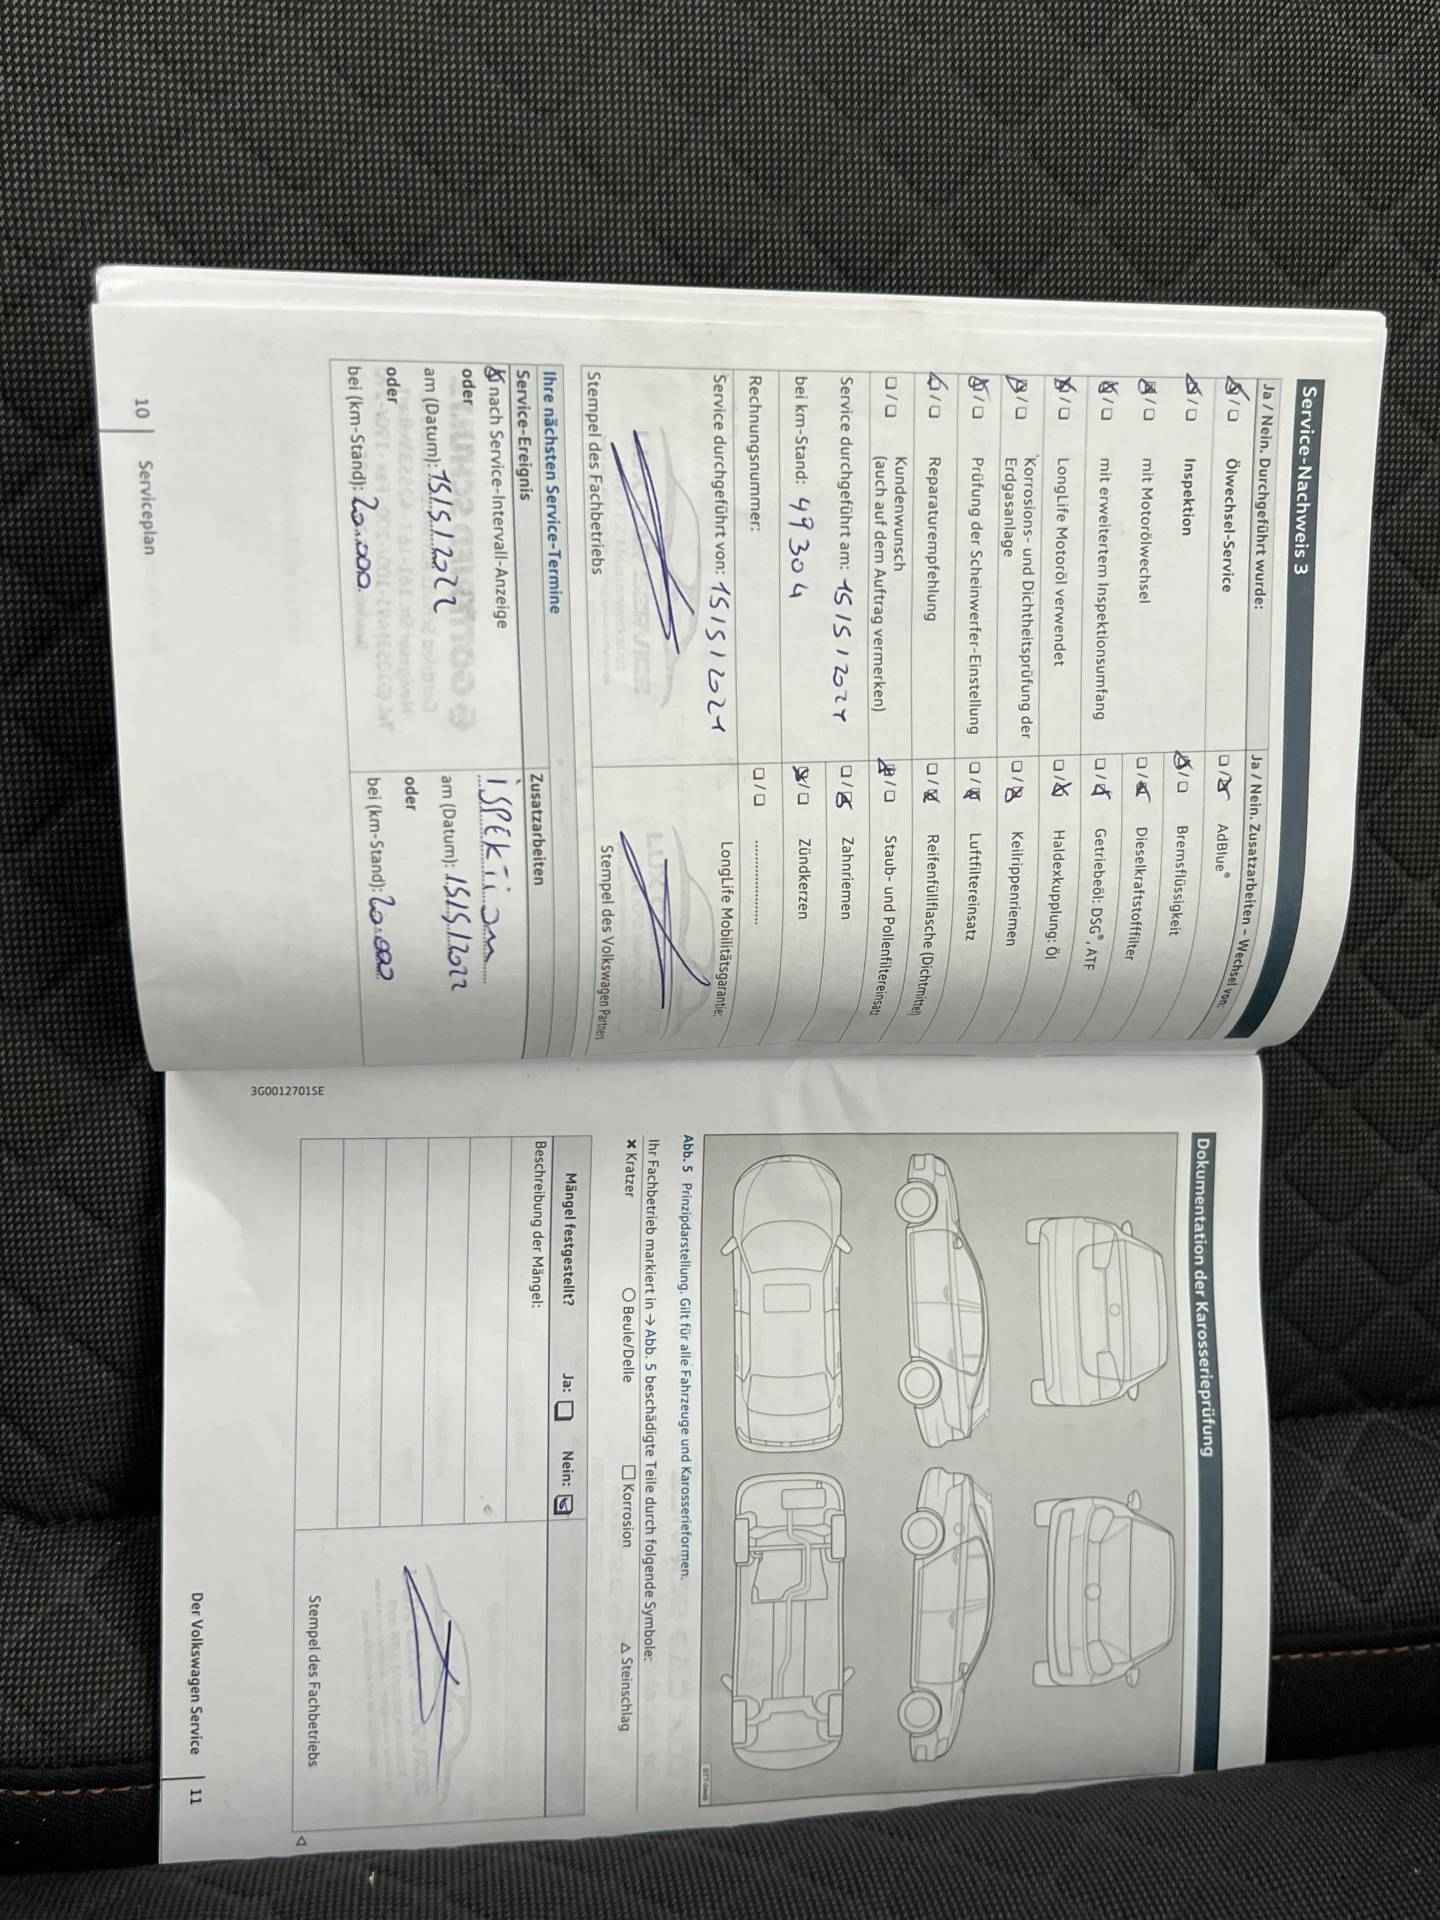 Service-Nachweis 3
Ja / Nein. Durchgeführt wurde:
Ölwechsel-Service
Inspektion
mit Motorölwechsel
mit erweitertem Inspektionsumfang
LongLife Motoröl verwendet
Korrosions- und Dichtheitsprüfung der
Erdgasanlage
Prüfung der Scheinwerfer-Einstellung
Reparaturempfehlung
Kundenwunsch
(auch auf dem Auftrag vermerken)
Service durchgeführt am: 15/5/2021
bei km-Stand: 49304
Rechnungsnummer:
Service durchgeführt von: 15/5/2021
Stempel des Fachbetriebs
Ja / Nein. Zusatzarbeiten – Wechsel von:
AdBlue®
Bremsflüssigkeit
Dieselkraftstofffilter
Getriebeöl: DSG®, ATF
Haldexkupplung: Öl
Keilrippenriemen
Luftfiltereinsatz
Reifenfüllflasche (Dichtmittel)
Staub- und Pollenfiltereinsatz
Zahnriemen
Zündkerzen
LongLife Mobilitätsgarantie:
Stempel des Volkswagen Partners
Ihre nächsten Service-Termine
Service-Ereignis
nach Service-Intervall-Anzeige
oder
am (Datum): 15/5/2022
oder
bei (km-Stand): 20.000
Zusatzarbeiten
am (Datum): 15/5/2022
oder
bei (km-Stand): 20.000
10 Serviceplan
3G0012701SE
Dokumentation der Karosserieprüfung
Abb. 5 Prinzipdarstellung. Gilt für alle Fahrzeuge und Karosserieformen.
Ihr Fachbetrieb markiert in → Abb. 5 beschädigte Teile durch folgende Symbole:
Kratzer Beule/Delle Korrosion Steinschlag
Mängel festgestellt? Ja: Nein:
Beschreibung der Mängel:
Stempel des Fachbetriebs
Der Volkswagen Service 11